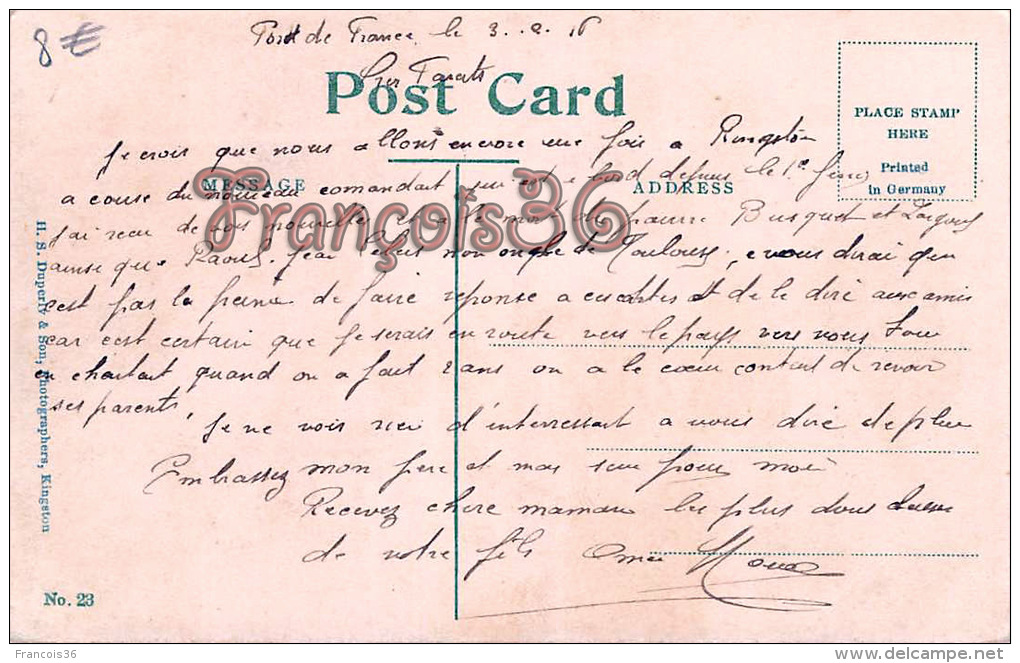 8 €
Fort de France, le 3. 2. 16
Post Card
PLACE STAMP
HERE
Printed
in Germany
Je crois que nous allons encore une fois a Kingston
MESSAGE
ADDRESS
a cause du nouveau comandant bord depuis le 1er
François36
J'ai recu de vos nouvelles et a la mort du pauvre Busquet et
ainsi que Raoul. J'ai mon oncle de Toulouse, e vous dirai qu'en
c'est pas la peine de faire reponse a ces cartes et de le dire aux amis
car c'est certain que je serais en route vers le pays vers vous tous
en chantant quand on a fait 2 ans on a le cœur content de revoir
ses parents.
Je ne vois rien d'interressant a vous dire de plus
Embrassez mon pere et mas seur pour moi
Recevez chere maman les plus doux
de votre fils
H. S. Duperly & Son, Photographers, Kingston
No. 23
Francois36
delcampe.net